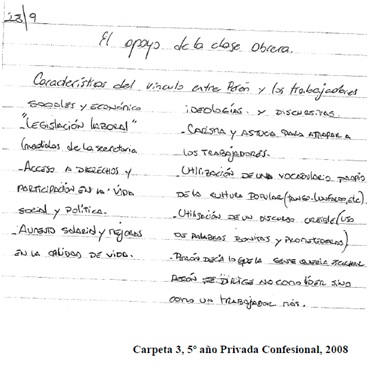 23/9
El apoyo de la clase obrera.
Características del vínculo entre Perón y los trabajadores
SOCIALES Y ECONÓMICO
"LEGISLACIÓN LABORAL"
(medidas de la secretaría
- ACCESO A DERECHOS Y
PARTICIPACIÓN EN LA VIDA
SOCIAL Y POLÍTICA.
- AUMENTO SALARIAL Y MEJORAS
EN LA CALIDAD DE VIDA.
IDEOLOGÍAS Y DISCURSIVAS
- CARISMA Y ASTUCIA PARA ATRAPAR A
LOS TRABAJADORES.
- UTILIZACIÓN DE UN VOCABULARIO PROPIO
DE LA CULTURA POPULAR (TANGO-LUNFARDO, ETC).
- UTILIZACIÓN DE UN DISCURSO CREIBLE (USO
DE PALABRAS BONITAS Y PROMETEDORAS)
- PERÓN DECÍA LO QUE LA GENTE QUERÍA ESCUCHAR
PERÓN SE DIRIGE NO COMO LÍDER SINO
COMO UN TRABAJADOR MÁS.
Carpeta 3, 5º año Privada Confesional, 2008